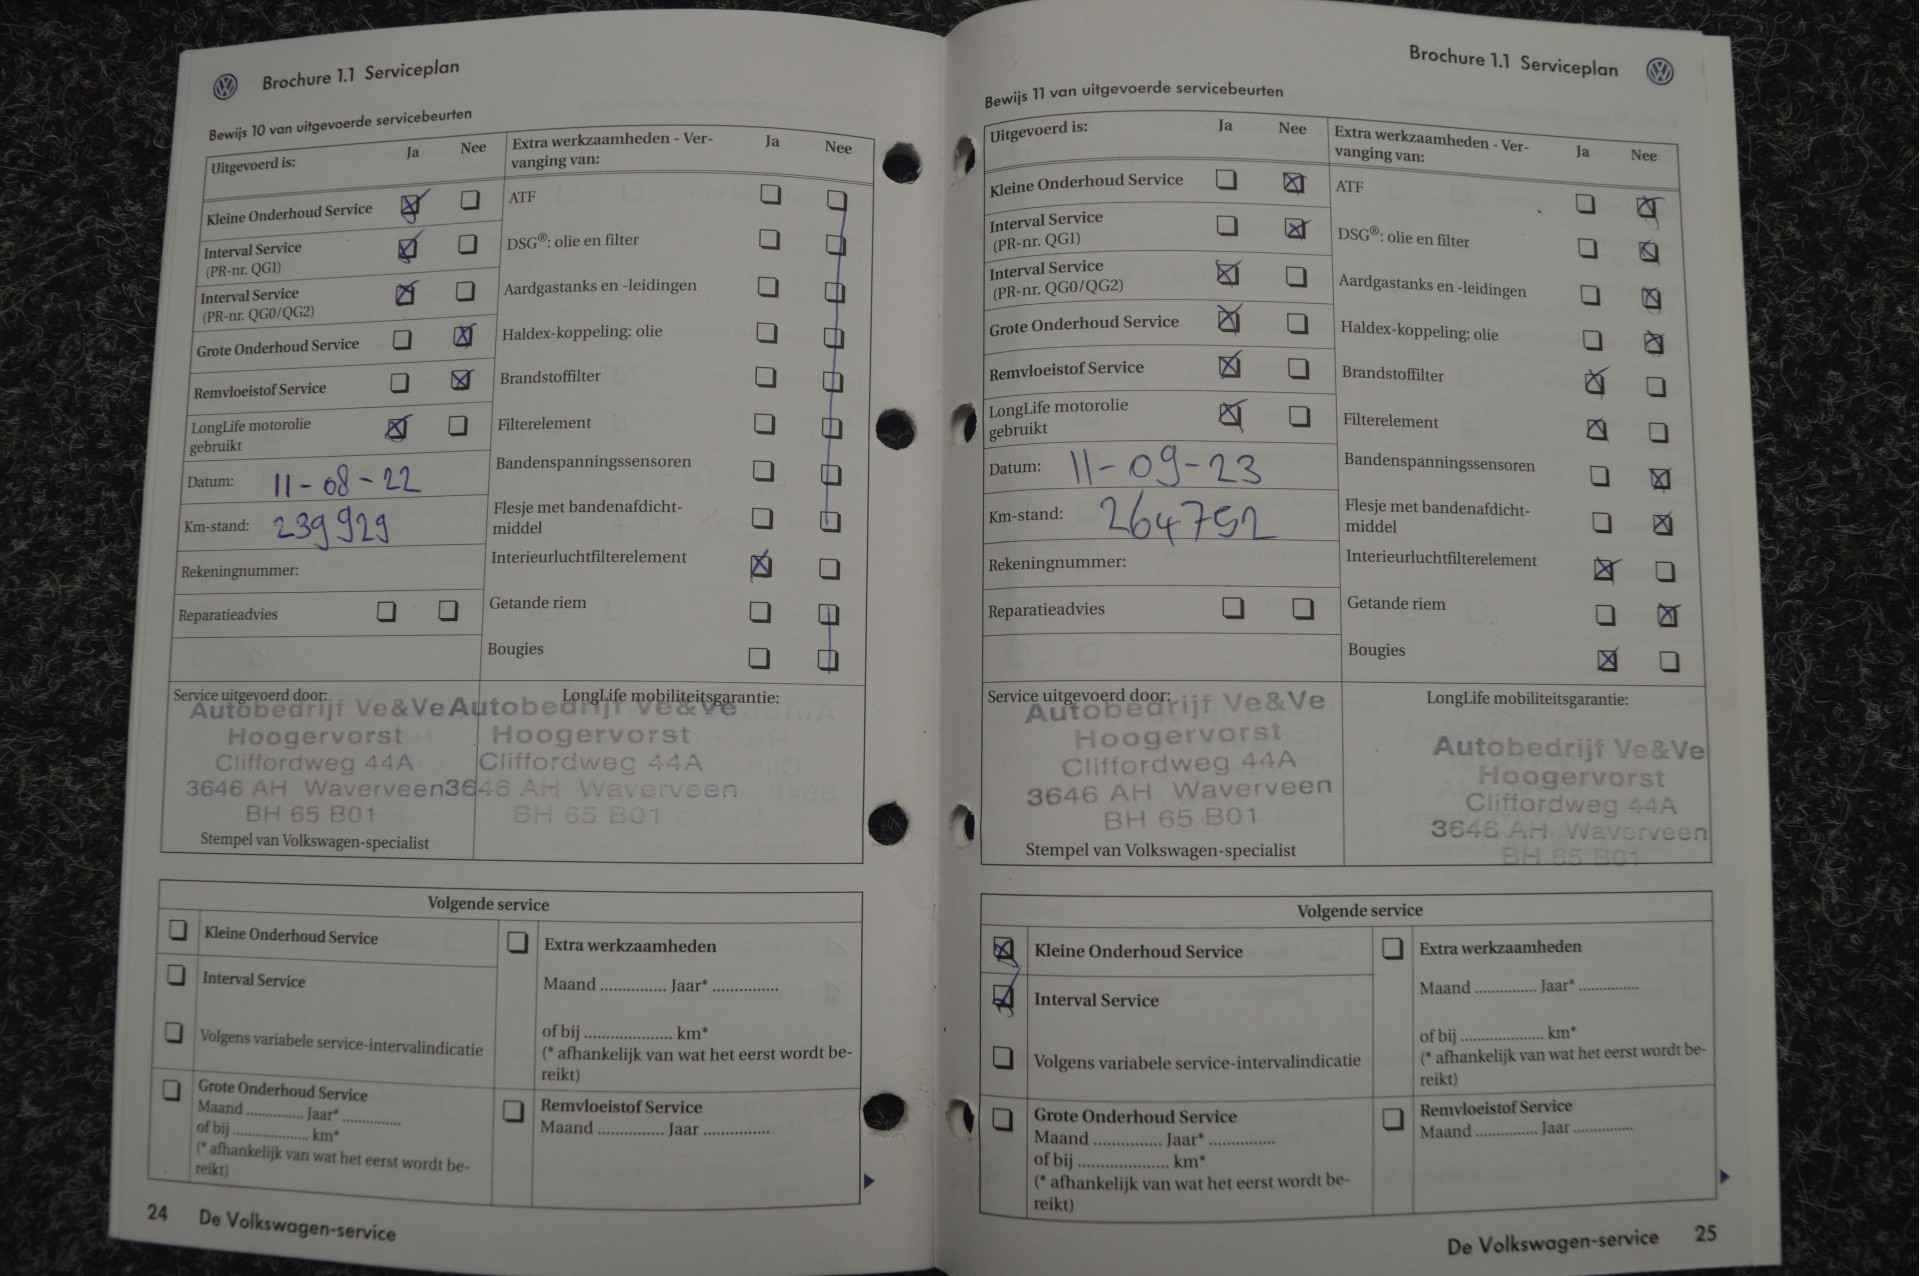 Brochure 1.1 Serviceplan
Bewijs 10 van uitgevoerde servicebeurten
Uitgevoerd is: Ja Nee
Kleine Onderhoud Service
Interval Service
(PR-nr. QG1)
Interval Service
(PR-nr. QG0/QG2)
Grote Onderhoud Service
Remvloeistof Service
LongLife motorolie
gebruikt
Datum: 11-08-22
Km-stand: 239929
Rekeningnummer:
Reparatieadvies
Extra werkzaamheden - Ver-
vanging van: Ja Nee
ATF
DSG®: olie en filter
Aardgastanks en -leidingen
Haldex-koppeling: olie
Brandstoffilter
Filterelement
Bandenspanningssensoren
Flesje met bandenafdicht-
middel
Interieurluchtfilterelement
Getande riem
Bougies
Service uitgevoerd door:
Autobedrijf Ve&Ve
Hoogervorst
Cliffordweg 44A
3646 AH Waverveen
BH 65 B01
Stempel van Volkswagen-specialist
LongLife mobiliteitsgarantie:
Autobedrijf Ve&Ve
Hoogervorst
Cliffordweg 44A
3646 AH Waverveen
BH 65 B01
Volgende service
Kleine Onderhoud Service
Interval Service
Volgens variabele service-intervalindicatie
Grote Onderhoud Service
Maand ............... Jaar* ...............
of bij .................... km*
(* afhankelijk van wat het eerst wordt be-
reikt)
Extra werkzaamheden
Maand ............... Jaar* ...............
of bij .................... km*
(* afhankelijk van wat het eerst wordt be-
reikt)
Remvloeistof Service
Maand ............... Jaar ...............
24 De Volkswagen-service
Brochure 1.1 Serviceplan
Bewijs 11 van uitgevoerde servicebeurten
Uitgevoerd is: Ja Nee
Kleine Onderhoud Service
Interval Service
(PR-nr. QG1)
Interval Service
(PR-nr. QG0/QG2)
Grote Onderhoud Service
Remvloeistof Service
LongLife motorolie
gebruikt
Datum: 11-09-23
Km-stand: 264752
Rekeningnummer:
Reparatieadvies
Extra werkzaamheden - Ver-
vanging van: Ja Nee
ATF
DSG®: olie en filter
Aardgastanks en -leidingen
Haldex-koppeling: olie
Brandstoffilter
Filterelement
Bandenspanningssensoren
Flesje met bandenafdicht-
middel
Interieurluchtfilterelement
Getande riem
Bougies
Service uitgevoerd door:
Autobedrijf Ve&Ve
Hoogervorst
Cliffordweg 44A
3646 AH Waverveen
BH 65 B01
Stempel van Volkswagen-specialist
LongLife mobiliteitsgarantie:
Autobedrijf Ve&Ve
Hoogervorst
Cliffordweg 44A
3646 AH Waverveen
BH 65 B01
Volgende service
Kleine Onderhoud Service
Interval Service
Volgens variabele service-intervalindicatie
Grote Onderhoud Service
Maand ............... Jaar* ...............
of bij .................... km*
(* afhankelijk van wat het eerst wordt be-
reikt)
Extra werkzaamheden
Maand ............... Jaar* ...............
of bij .................... km*
(* afhankelijk van wat het eerst wordt be-
reikt)
Remvloeistof Service
Maand ............... Jaar ...............
De Volkswagen-service 25